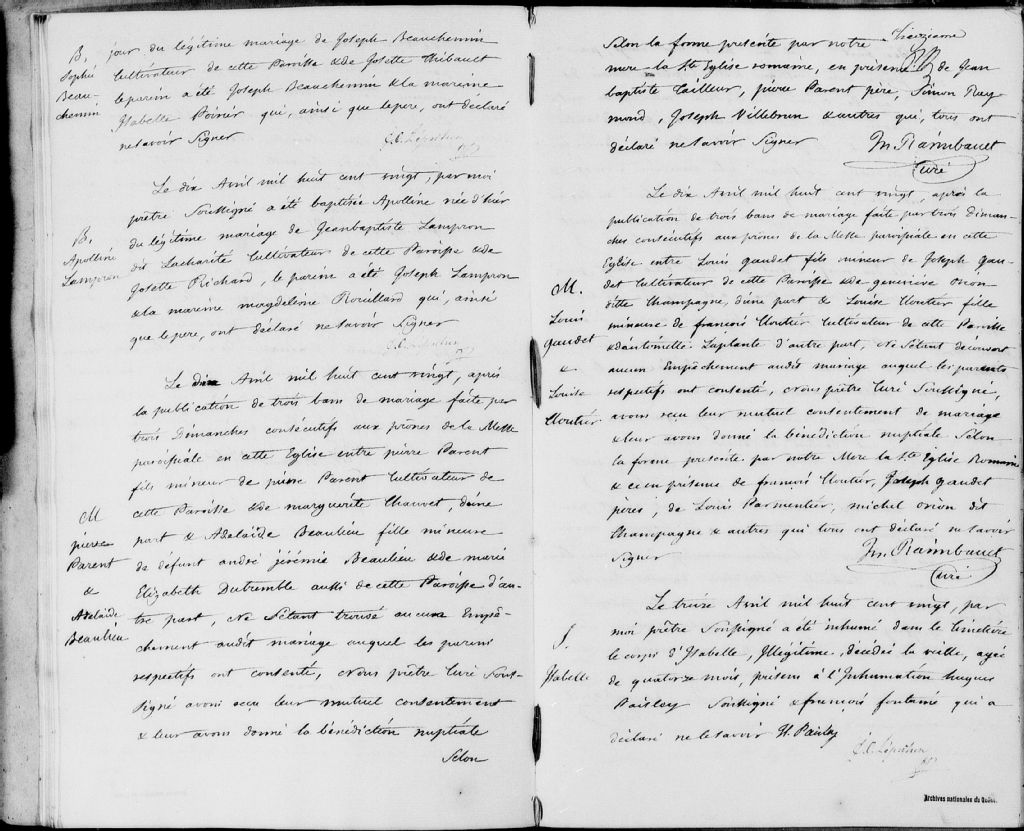 B,
Sophie
Beau-
chemin
jour du légitime mariage de Joseph Beauchemin
Cultivateur de cette Paroisse & de Josette Thibault
le parein a été Joseph Beauchemin & la mareine
Isabelle Poirier qui, ainsi que le pere, ont déclaré
ne savoir Signer
B,
Apolline
Lampron
Le dix Avril mil huit cent vingt, par moi
prêtre Soussigné a été baptisée Apolline née d'hier
du légitime mariage de Jeanbaptiste Lampron
dit Lacharite Cultivateur de cette Paroisse & de
Josette Richard, le parein a été Joseph Lampron
& la mareine magdeleine Rouillard qui, ainsi
que le pere, ont déclaré ne savoir Signer
M
pierre
Parent
&
Adelaide
Beaulieu
Le dix Avril mil huit cent vingt, après
la publication de trois bans de mariage faite par
trois Dimanches consécutifs aux prones de la Messe
paroissiale en cette Eglise entre pierre Parent
fils mineur de pierre Parent Cultivateur de
cette Paroisse & de marguerite Chauvet, d'une
part & Adelaide Beaulieu fille mineure
de défunt andré jérémie Beaulieu & de marie
Elizabeth Dutremble aussi de cette Paroisse d'au-
tre part, Ne Sétant trouvé aucun Empê-
chement audit mariage auquel les parens
respectifs ont consenté, Nous prêtre Curé Sous-
signé avons reçu leur mutuel consentement
& leur avons donné la bénédiction nuptiale
Selon
Treizieme
Selon la forme prescrite par notre
mere la Ste Eglise romaine, en présence de Jean
baptiste Tailleur, pierre Parent père, Simon Ray
mond, Joseph Villebrun & autres qui, tous ont
déclaré ne savoir Signer
M. Raimbault
Curé
M.
Louis
gaudet
&
Louise
Cloutier
Le dix Avril mil huit cent vingt, après la
publication de trois bans de mariage faite par trois diman-
ches consécutifs aux prones de la Messe paroissiale en cette
Eglise entre Louis gaudet fils mineur de Joseph gau-
det Cultivateur de cette Paroisse & de geneviève orion
ditte Champagne, d'une part & Louise Cloutier fille
mineure de françois Cloutier Cultivateur de cette Paroisse
& d'antoinette Laplante d'autre part, Ne Sétant découvert
aucun Empêchement audit mariage auquel les parents
respectifs ont consenté, Nous prêtre Curé Soussigné,
avons reçu leur mutuel consentement de mariage
& leur avons donné la bénédiction nuptiale Selon
la forme prescrite par notre Mere la Ste Eglise Romaine
& ce en présence de françois Cloutier, Joseph gaudet
pères, de Louis Parmentier, michel orion dit
Champagne & autres qui tous ont déclaré ne savoir
signer
M. Raimbault
Curé
S.
Isabelle
Le treize Avril mil huit cent vingt, par
moi prêtre Soussigné a été inhumé dans le Cimetière
le corps d'Isabelle, Illégitime, décédée la veille, agée
de quatorze mois, présens à l'Inhumation hugues
Paisley Soussigné & françois fontaine qui a
déclaré ne le savoir H. Paisley
Archives nationales du Québec